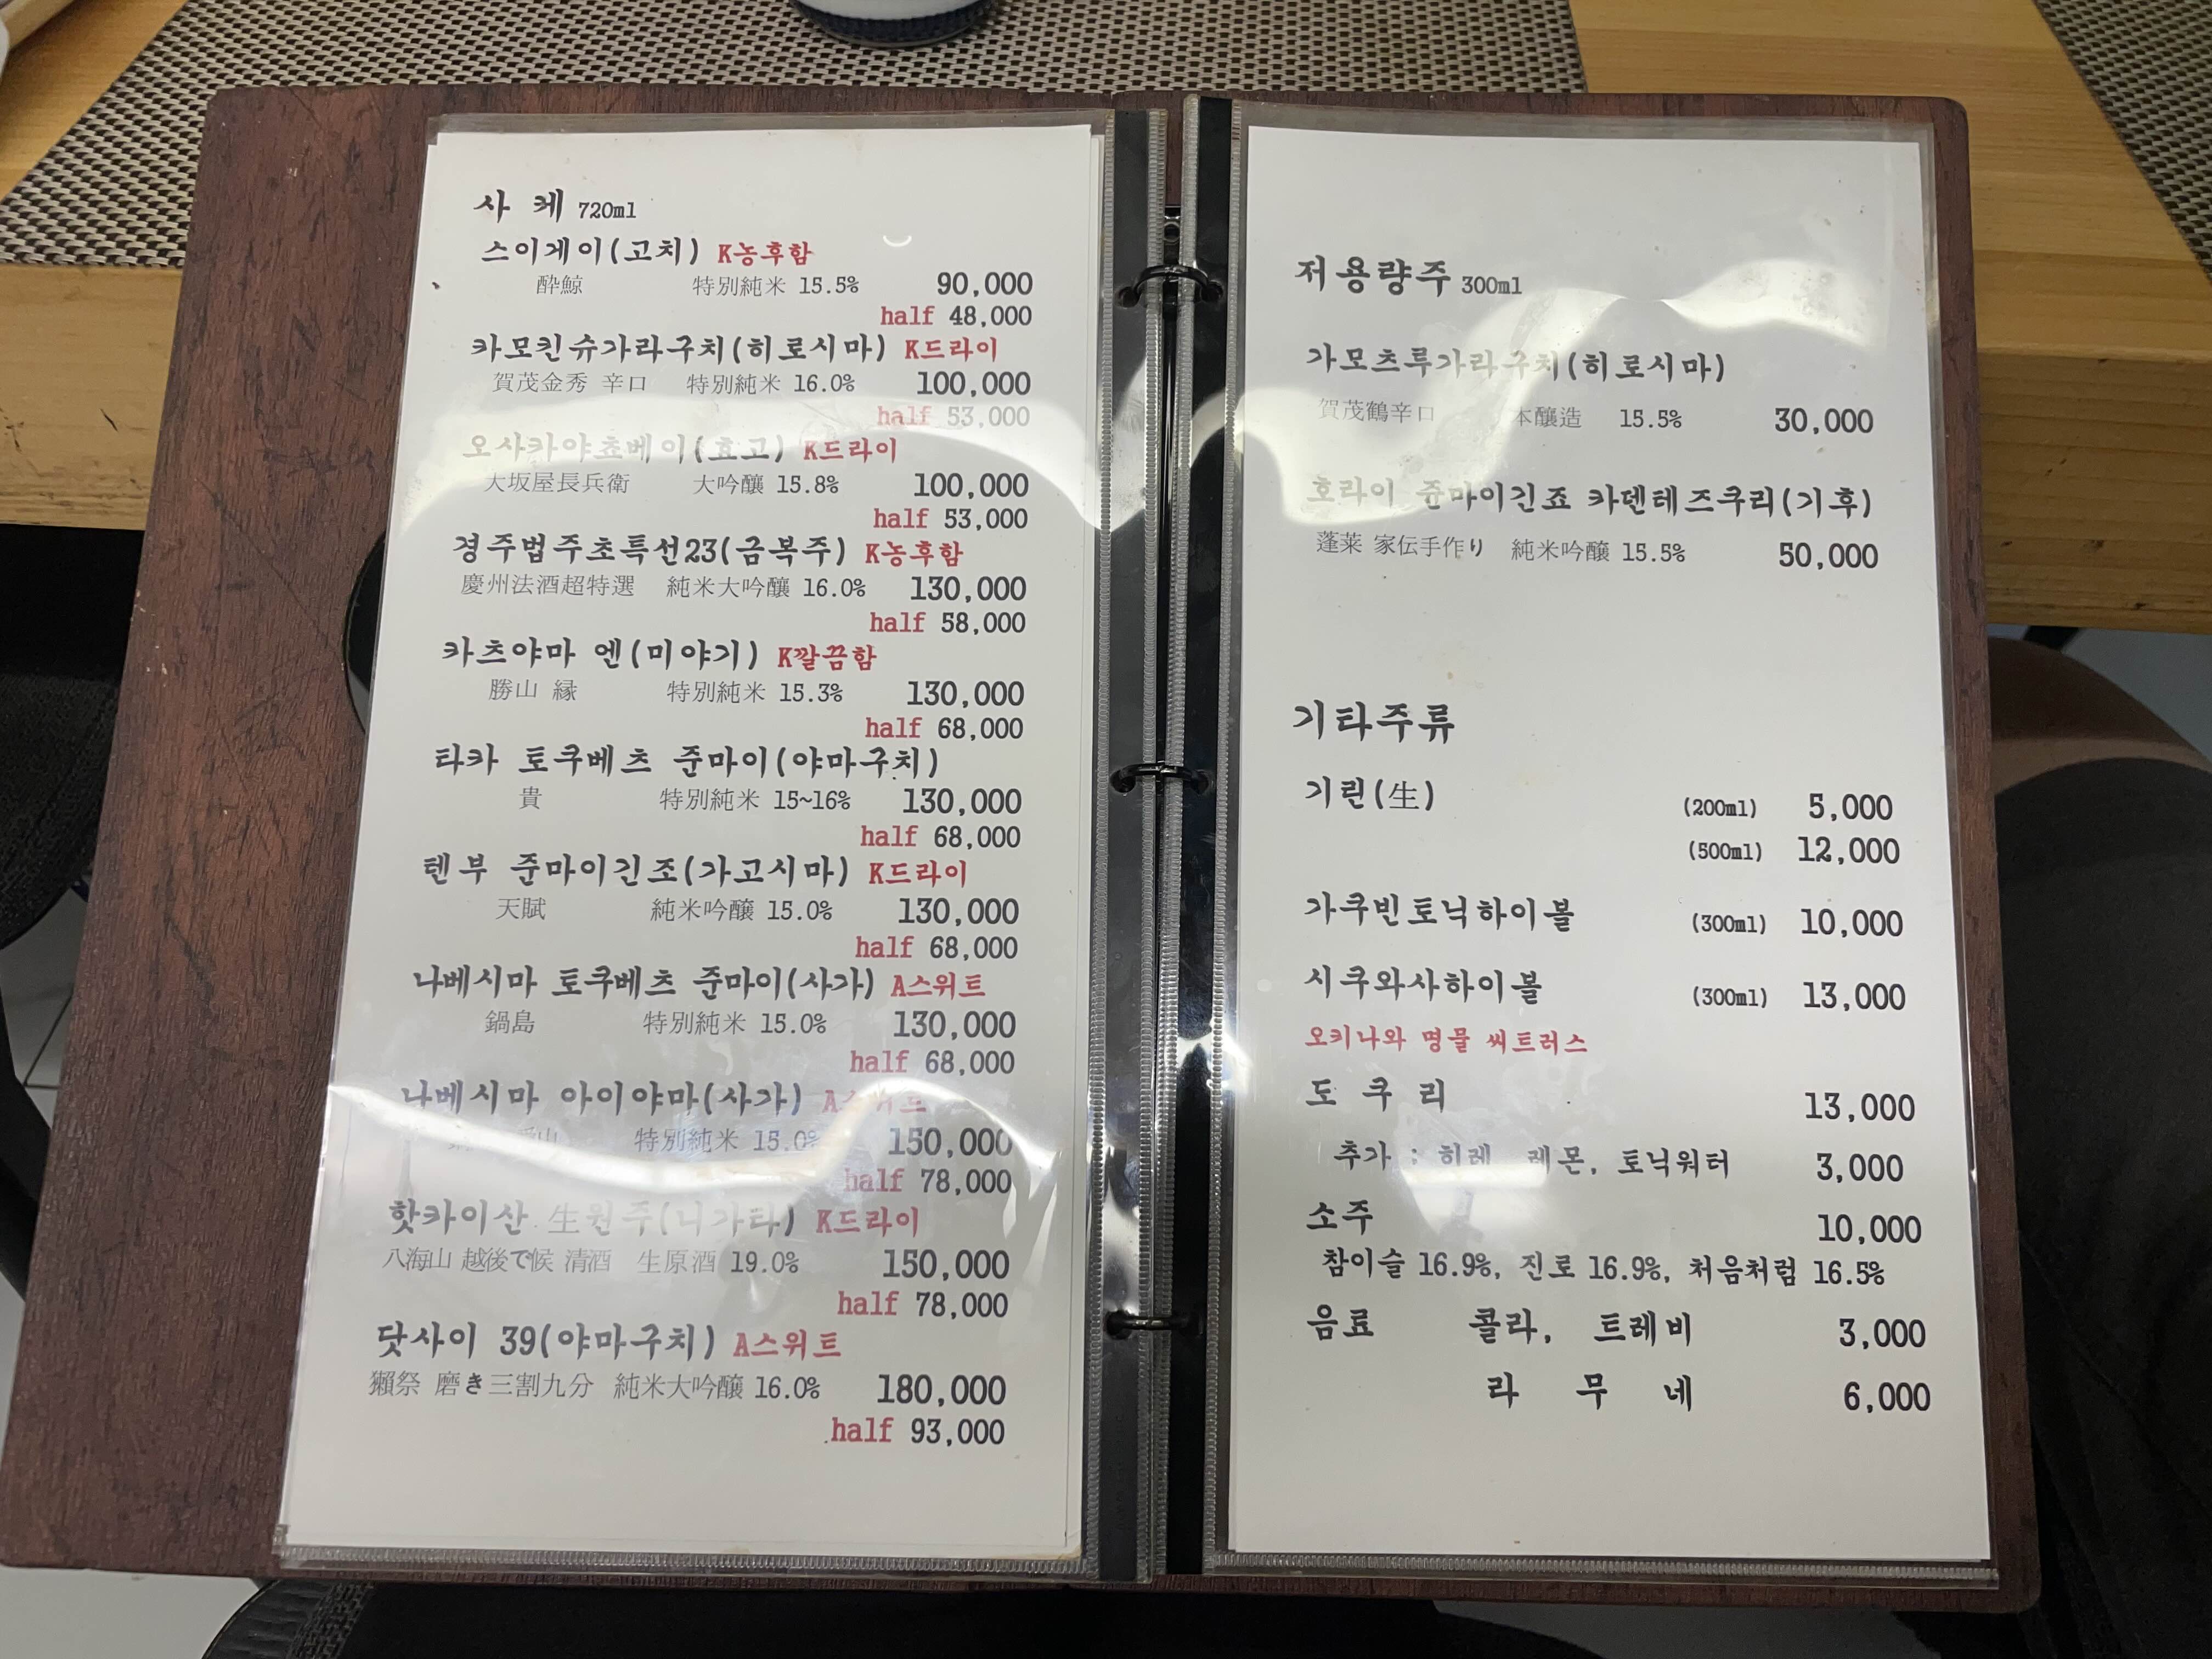 사 케 720ml
스이게이(고치) K농후함
酔鯨 特別純米 15.5% 90,000
half 48,000
카모킨슈가라구치(히로시마) K드라이
賀茂金秀 辛口 特別純米 16.0% 100,000
half 53,000
오사카야쵸베이(효고) K드라이
大坂屋長兵衛 大吟醸 15.8% 100,000
half 53,000
경주법주초특선23(금복주) K농후함
慶州法酒超特選 純米大吟醸 16.0% 130,000
half 58,000
카츠야마 엔(미야기) K깔끔함
勝山 縁 特別純米 15.3% 130,000
half 68,000
타카 토쿠베츠 준마이(야마구치)
貴 特別純米 15~16% 130,000
half 68,000
텐부 준마이긴조(가고시마) K드라이
天賦 純米吟醸 15.0% 130,000
half 68,000
나베시마 토쿠베츠 준마이(사가) A스위트
鍋島 特別純米 15.0% 130,000
half 68,000
나베시마 아이야마(사가) A스위트
特別純米 15.0% 150,000
half 78,000
핫카이산 生원주(니가타) K드라이
八海山 越後で候 清酒 生原酒 19.0% 150,000
half 78,000
닷사이 39(야마구치) A스위트
獺祭 磨き三割九分 純米大吟醸 16.0% 180,000
half 93,000
저용량주 300ml
가모츠루가라구치(히로시마)
賀茂鶴辛口 本醸造 15.5% 30,000
호라이 쥰마이긴죠 카덴테즈쿠리(기후)
蓬莱 家伝手作り 純米吟醸 15.5% 50,000
기타주류
기린(生) (200ml) 5,000
(500ml) 12,000
가쿠빈토닉하이볼 (300ml) 10,000
시쿠와사하이볼 (300ml) 13,000
오키나와 명물 씨트러스
도 쿠 리 13,000
추가 : 히레 레몬, 토닉워터 3,000
소주 10,000
참이슬 16.9%, 진로 16.9%, 처음처럼 16.5%
음료 콜라, 트레비 3,000
라 무 네 6,000